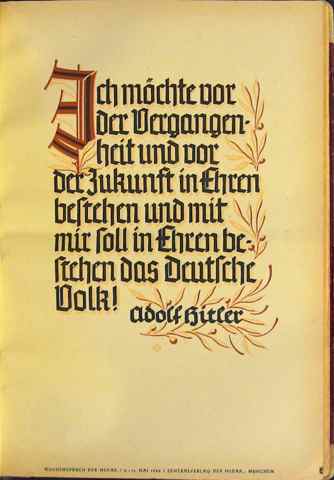 Ich möchte vor
der Vergangen-
heit und vor
der Zukunft in Ehren
bestehen und mit
mir soll in Ehren be-
stehen das Deutsche
Volk!
Adolf Hitler
WOCHENSPRUCH DER NSDAP / MAI / ZENTRALVERLAG DER NSDAP., MÜNCHEN